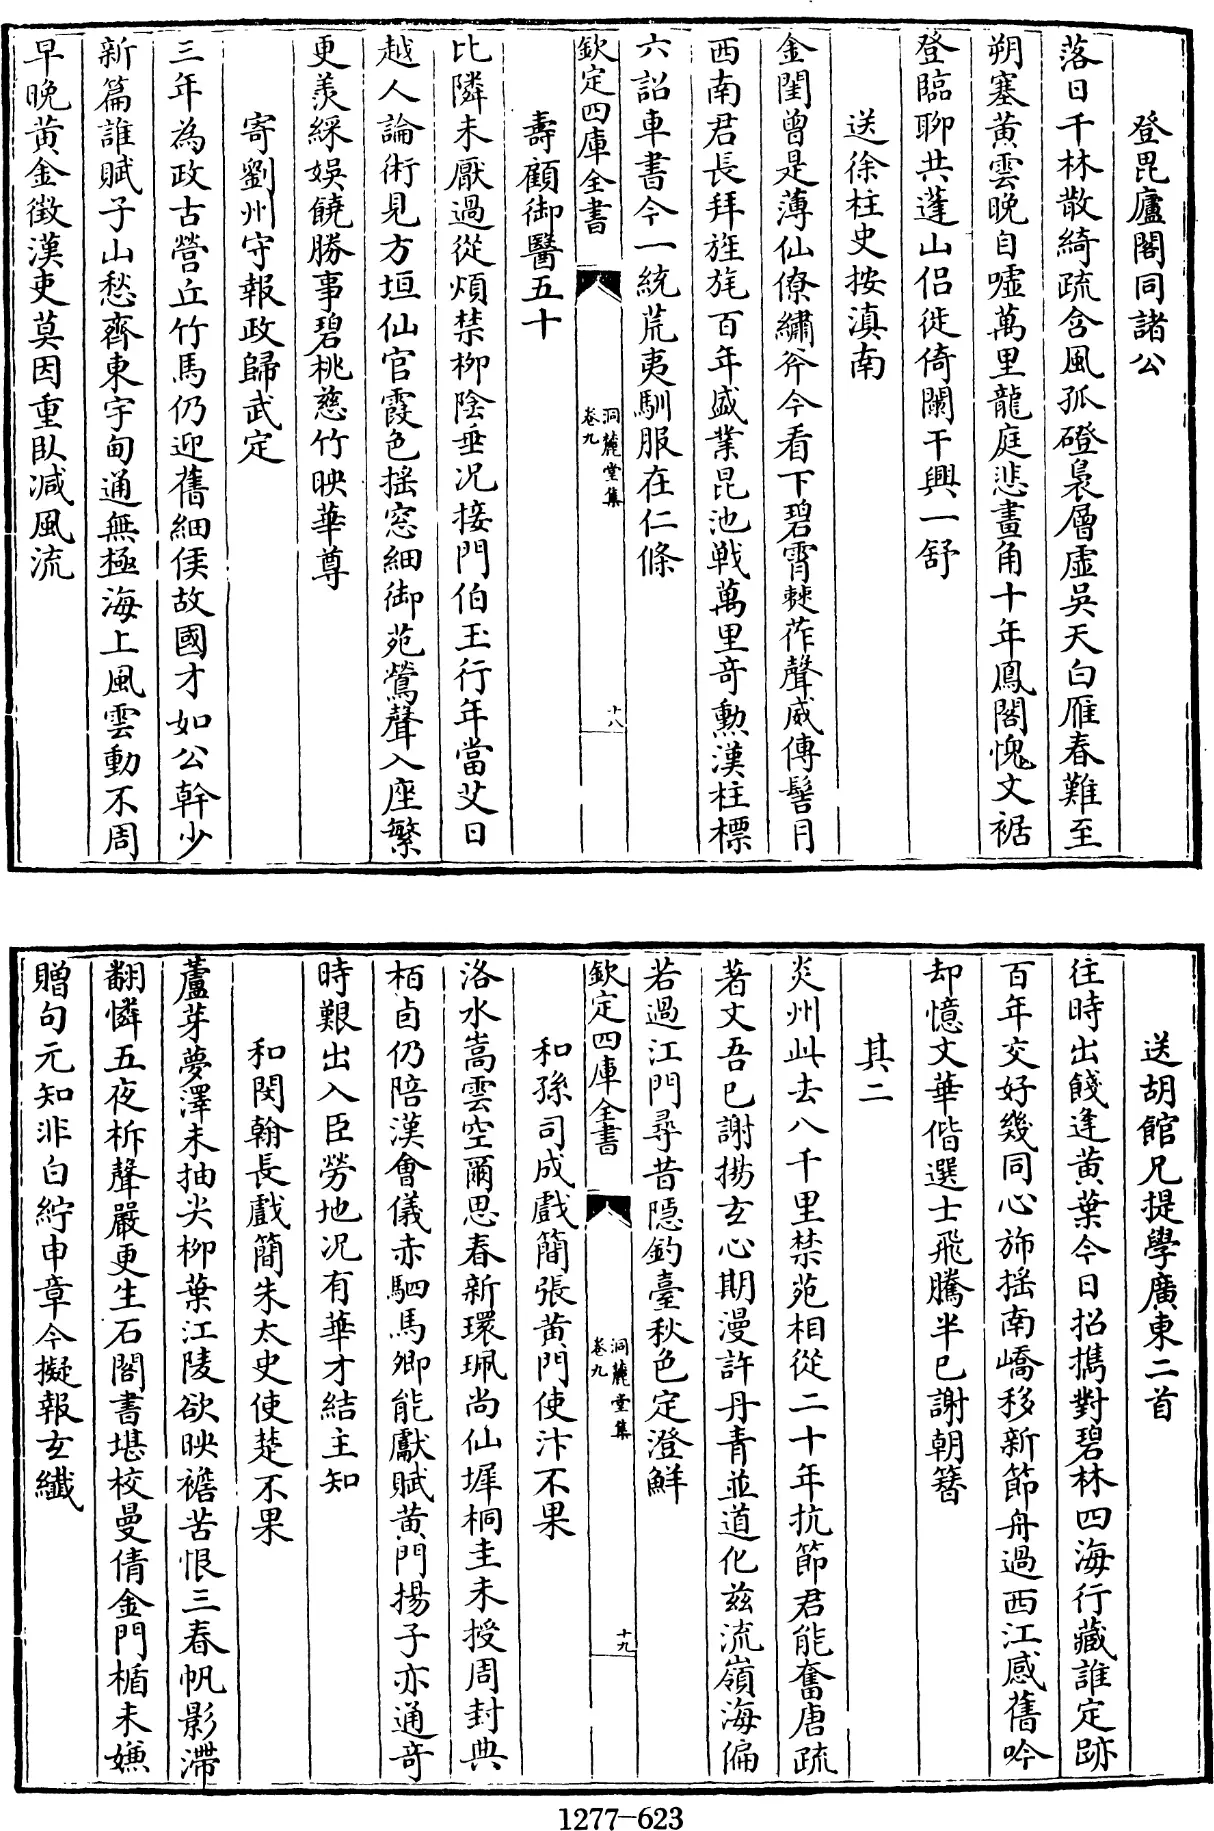 登毘廬閣同諸公
落日千林散綺疏含風孤磴裊層虛吳天白雁春難至
朔塞黃雲晚自噓萬里龍庭悲畫角十年鳳閣愧文裾
登臨聊共蓬山侣徙倚闌干興一舒
送徐柱史按滇南
金閨曾是薄仙僚繡斧今看下碧霄㯤筰聲威傳髻月
西南君長拜旌旄百年盛業昆池戰萬里奇勲漢柱標
六詔車書今一統荒夷馴服在仁條
欽定四庫全書
洞麓堂集
卷九
十八
壽顧御醫五十
比隣未厭過從煩禁柳陰垂况接門伯玉行年當艾日
越人論術見方垣仙官霞色揺窓細御苑鶯聲入座繁
更羨綵娱饒勝事碧桃慈竹映華尊
寄劉州守報政歸武定
三年為政古營丘竹馬仍迎舊細侯故國才如公幹少
新篇誰賦子山愁齊東宇甸通無極海上風雲動不周
早晚黄金徴漢吏莫因重臥减風流
送胡館兄提學廣東二首
往時出餞逢黄葉今日招攜對碧林四海行藏誰定跡
百年交好幾同心斾揺南嶠移新節舟過西江感舊吟
却憶文華偕選士飛騰半已謝朝簮
其二
炎州此去八千里禁苑相從二十年抗節君能奮唐疏
著文吾已謝揚玄心期漫許丹青並道化兹流嶺海偏
若過江門尋昔隱釣臺秋色定澄鮮
欽定四庫全書
洞麓堂集
卷九
十九
和孫司成戲簡張黄門使汴不果
洛水嵩雲空爾思春新環珮尚仙墀桐圭未授周封典
栢卣仍陪漢會儀赤駟馬卿能獻賦黄門揚子亦通奇
時艱出入臣勞地况有華才結主知
和閔翰長戲簡朱太史使楚不果
蘆芽夢澤未抽尖柳葉江陵欲映襜苦恨三春帆影滯
翻憐五夜柝聲嚴更生石閣書堪校曼倩金門楯未嫌
贈句元知非白紵申章今擬報玄纖
1277-623